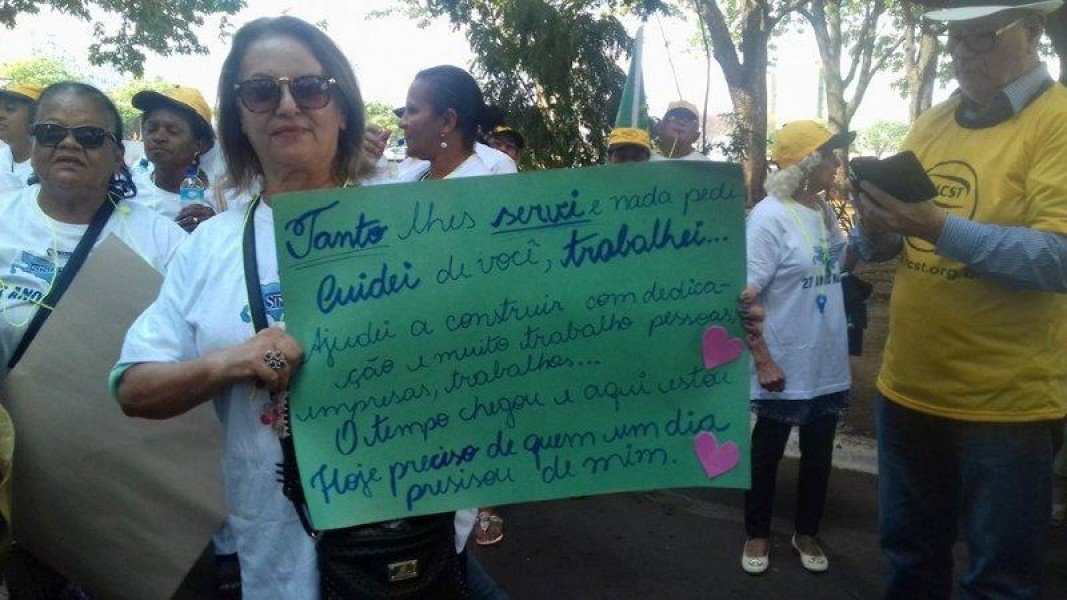 Tanto lhes servi e nada pedi
Cuidei de você, trabalhei...
Ajudei a construir com dedica-
ção e muito trabalho pessoas,
empresas, trabalhos...
O tempo chegou e aqui estou
Hoje preciso de quem um dia
presisou de mim.
CST
cst.org.
27 ANOS
ANO